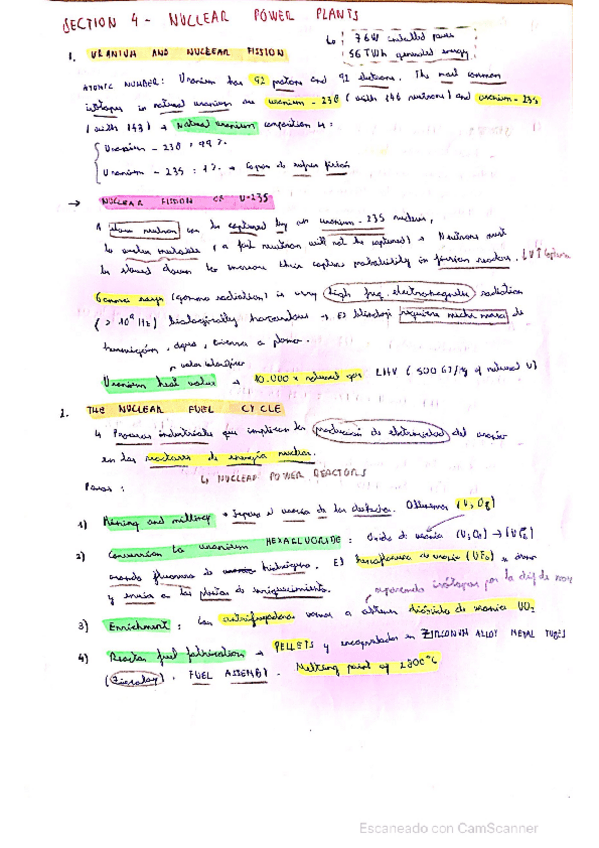 SECTION 4 - NUCLEAR POWER PLANTS
↳ 7 GW installed power
56 TWh generated energy
1. URANIUM AND NUCLEAR FISSION
ATOMIC NUMBER: Uranium has 92 protons and 92 electrons. The most common
isotopes in natural uranium are uranium - 238 (with 146 neutrons) and uranium - 235
(with 143) → Natural uranium composition is:
Uranium - 238 : 99 %
Uranium - 235 : 1 % → Capaz de sufrir fisión
→ NUCLEAR FISSION OF U-235
A slow neutron can be captured by an uranium - 235 nucleus,
unstable (a fast neutron will not be captured) → Neutrons must
be slowed down to increase their capture probability in fission reactors. ↓V ↑ Capture
Gamma rays (gamma radiation) is very high freq. electromagnetic radiation
Hz) biologically hazardous → El blindaje requiere mucha masa de
hormigón, agua, o plomo.
↗ valor calorífico
Uranium heat value → 10.000 x natural gas LHV (500 GJ/kg of natural U)
2. THE NUCLEAR FUEL CYCLE
↳ Procesos industriales que implican la producción de electricidad del uranio
en los reactores de energía nuclear.
↳ NUCLEAR POWER REACTORS
Pasos :
1) Mining and milling → Separa el uranio de los desechos. Obtenemos (U3O8)
2) Conversion to uranium HEXAFLUORIDE : óxido de uranio (U3O8) → (UF6)
usando fluoruro de hidrógeno. El hexafluoruro de uranio (UF6)
y envía a las plantas de enriquecimiento.
separando isótopos por la dif de masa
3) Enrichment : Con centrifugadoras vamos a obtener dióxido de uranio UO2
4) Reactor fuel fabrication → PELLETS y encapsulados in ZIRCONIUM ALLOY METAL TUBES
(Zircaloy). FUEL ASSEMBLY. Melting point of 2800°C
Escaneado con CamScanner